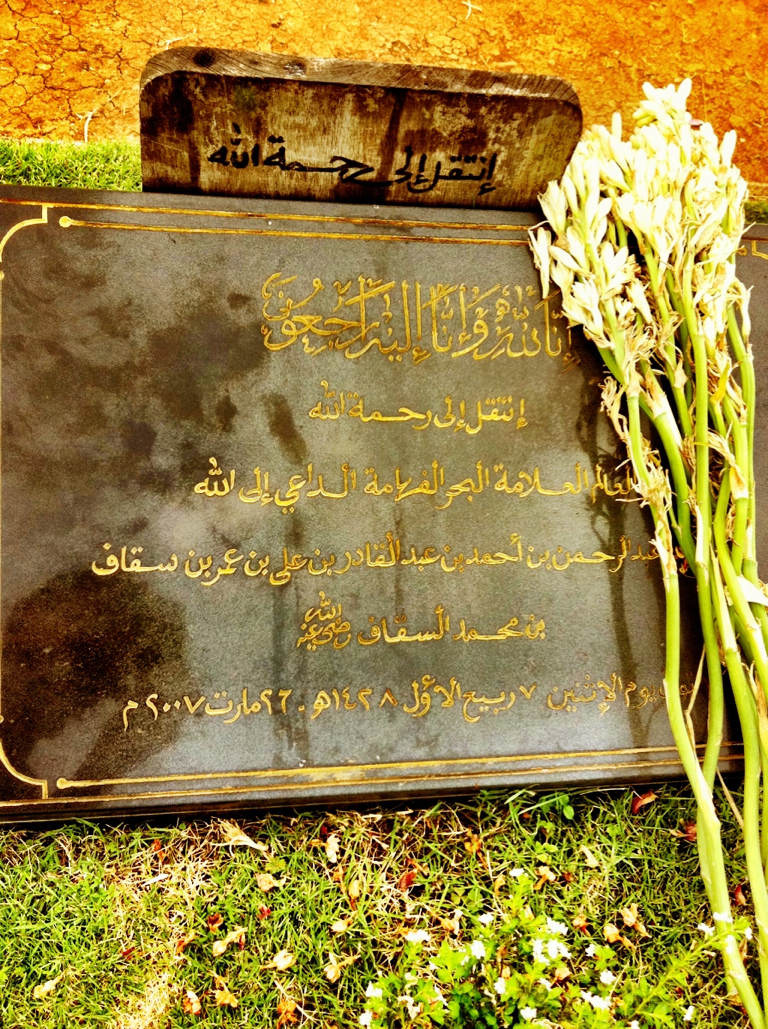 إنتقل إلى رحمة الله
إنا لله وإنا إليه راجعون
إنتقل إلى رحمة الله
العالم العلامة البحر الفهامة الداعي إلى الله
عبد الرحمن بن أحمد بن عبد القادر بن علي بن عمر بن سقاف
بن محمد السقاف رضي الله عنه
يوم الإثنين ٧ ربيع الأول ١٤٢٨هـ - ٢٦ مارت ٢٠٠٧ م